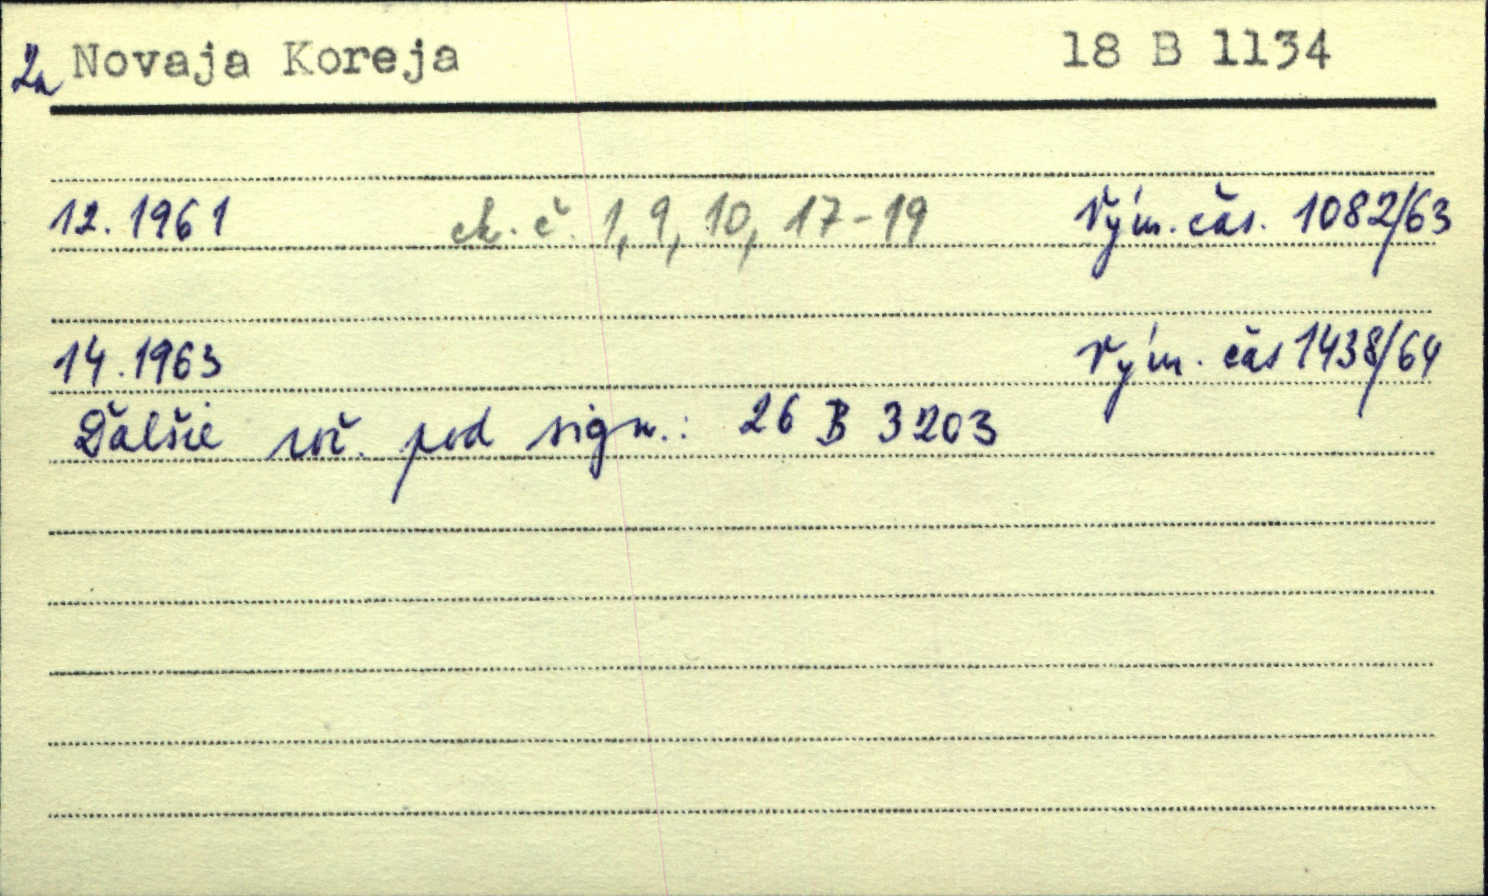 2a Novaja Koreja 18 B 1134
12.1961 ch. č. 1, 9, 10, 17-19 Vým. čas. 1082/63
14.1963 Vým. čas 1438/64
Ďalšie roč. pod sign.: 26 B 3203